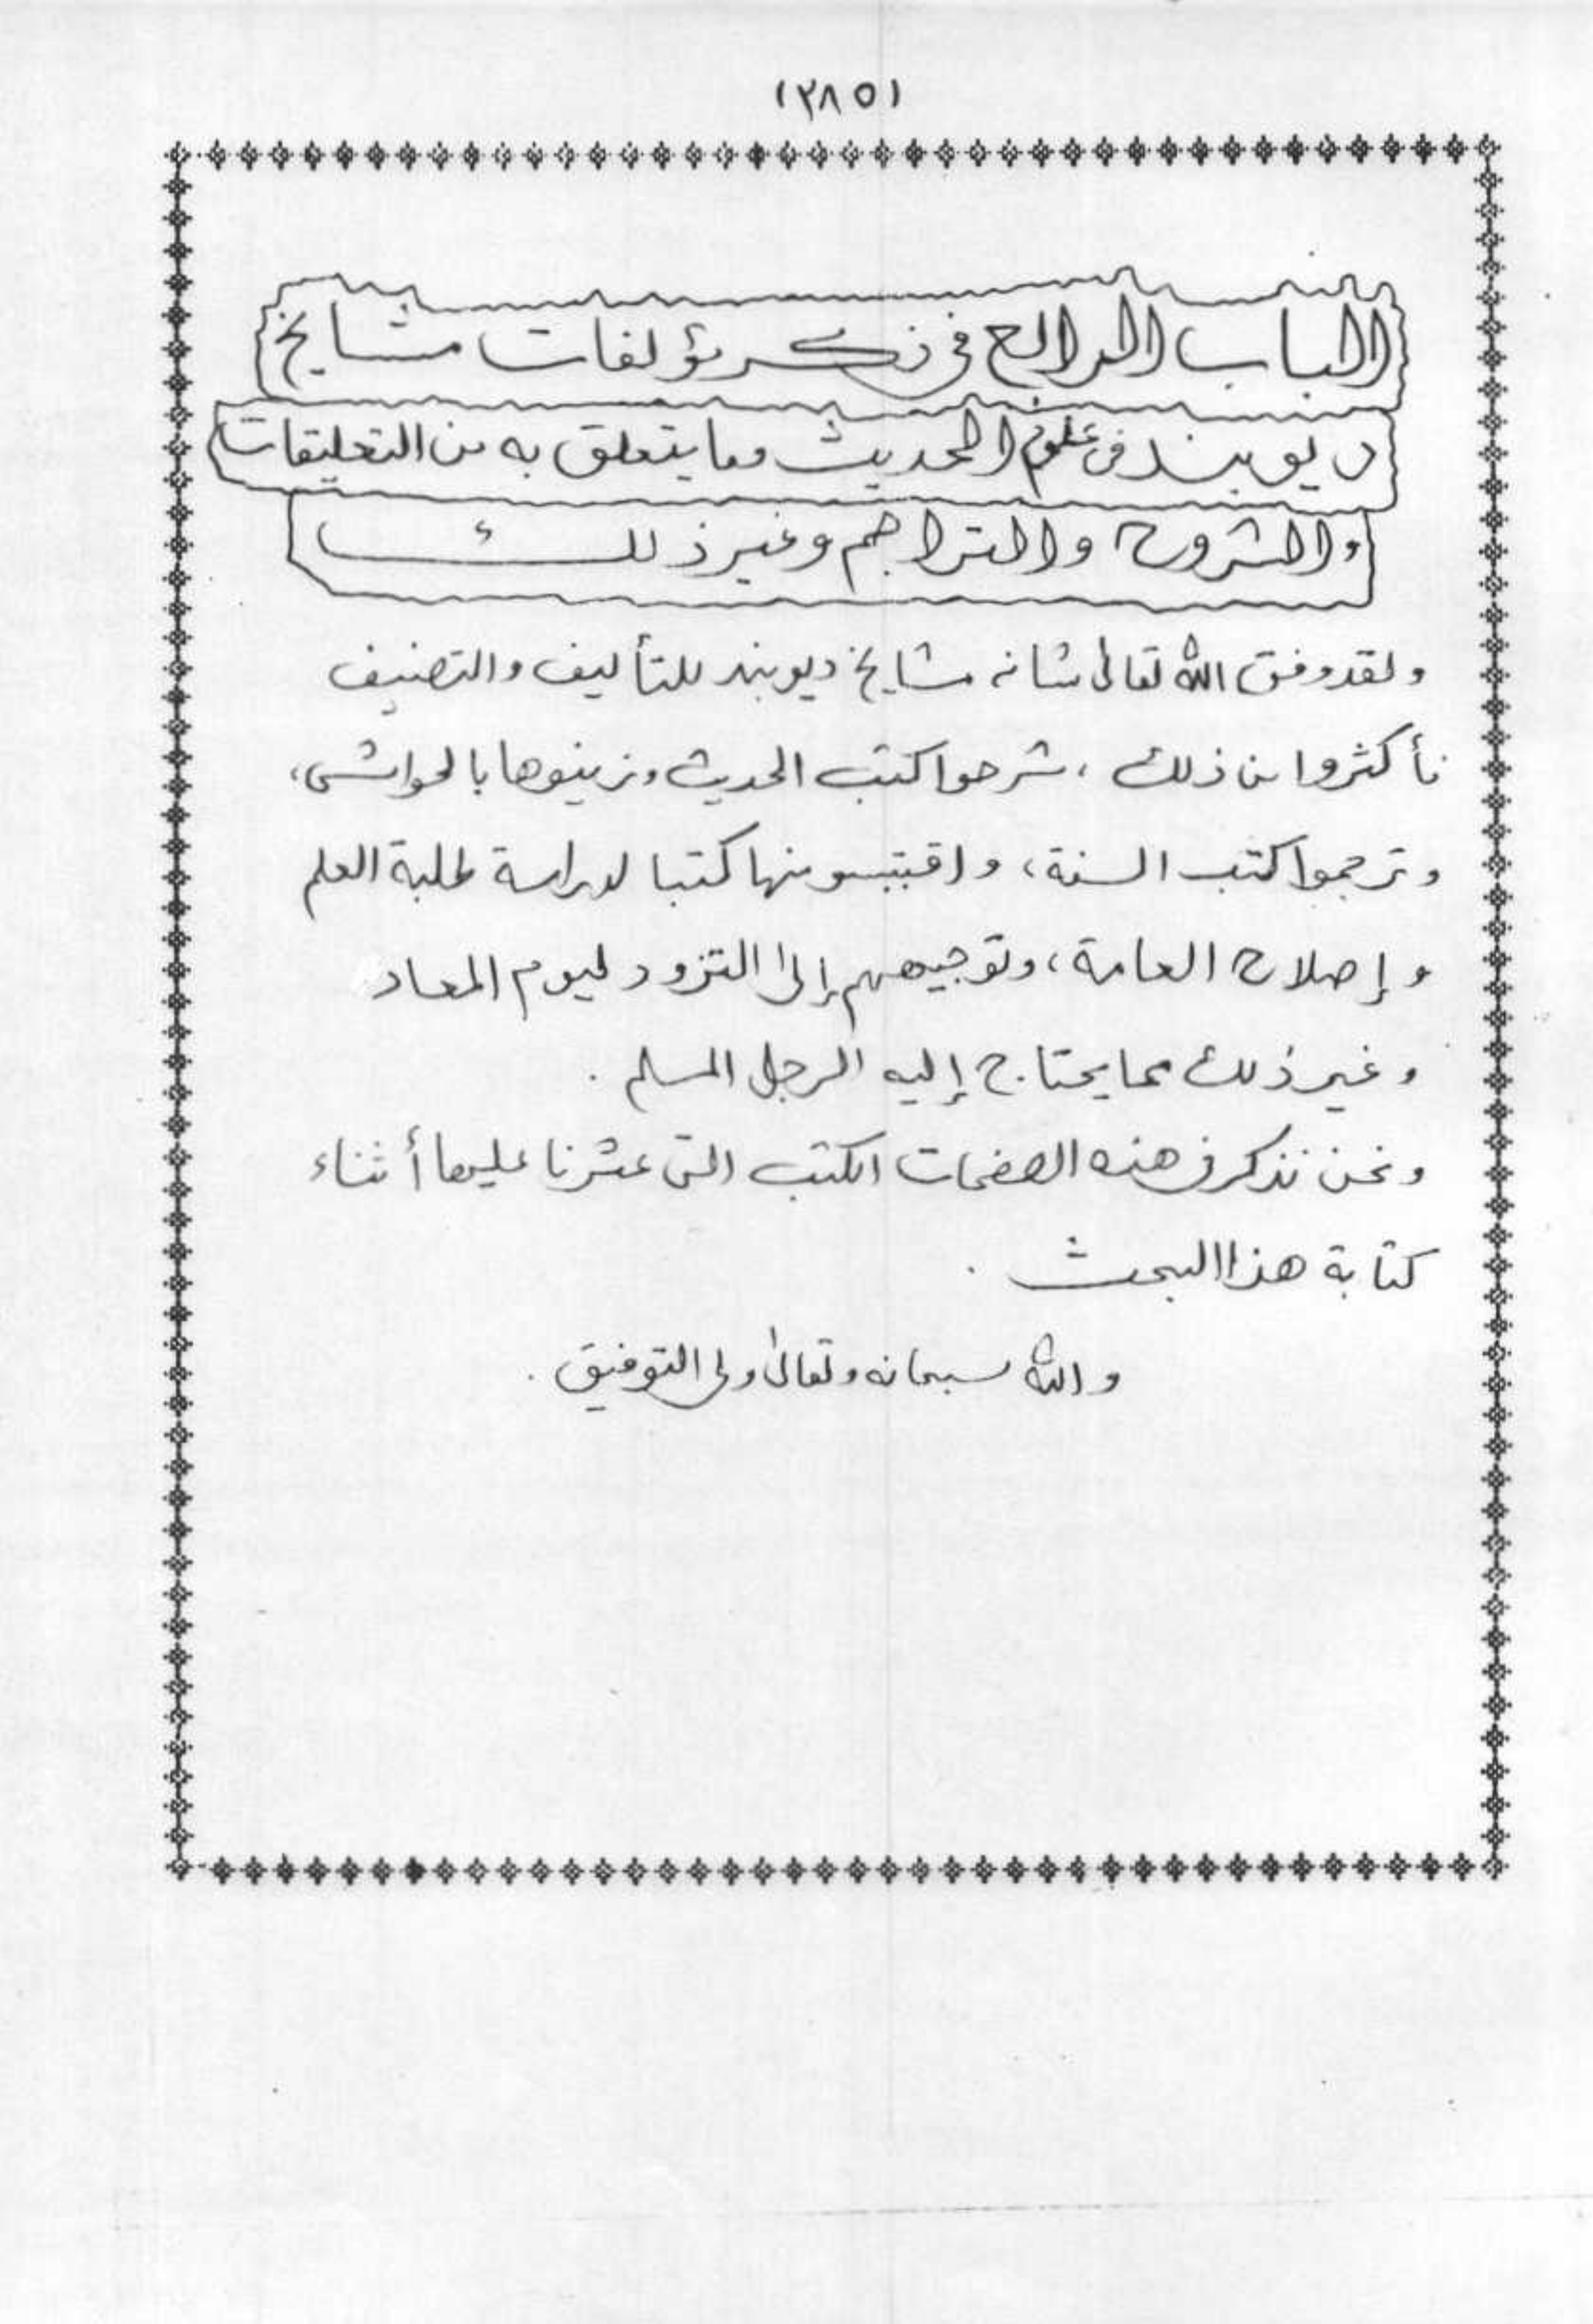 (٣٨٥)
الباب الرابع في ذكر مؤلفات مشايخ
ديوبند في علوم الحديث وما يتعلق به من التعليقات
والشروح والتراجم وغير ذلك
ولقد وفق الله تعالى شانه مشايخ ديوبند للتأليف والتصنيف
فأكثروا من ذلك ، شرحوا كتب الحديث وزينوها بالحواشي،
وترجموا كتب السنة، واقتبسو منها كتبا لدراسة طلبة العلم
وإصلاح العامة، وتوجيههم إلى التزود ليوم المعاد
وغير ذلك مما يحتاج إليه الرجل المسلم .
ونحن نذكر في هذه الصفحات الكتب التي عثرنا عليها أثناء
كتابة هذا البحث .
والله سبحانه وتعالى ولى التوفيق .